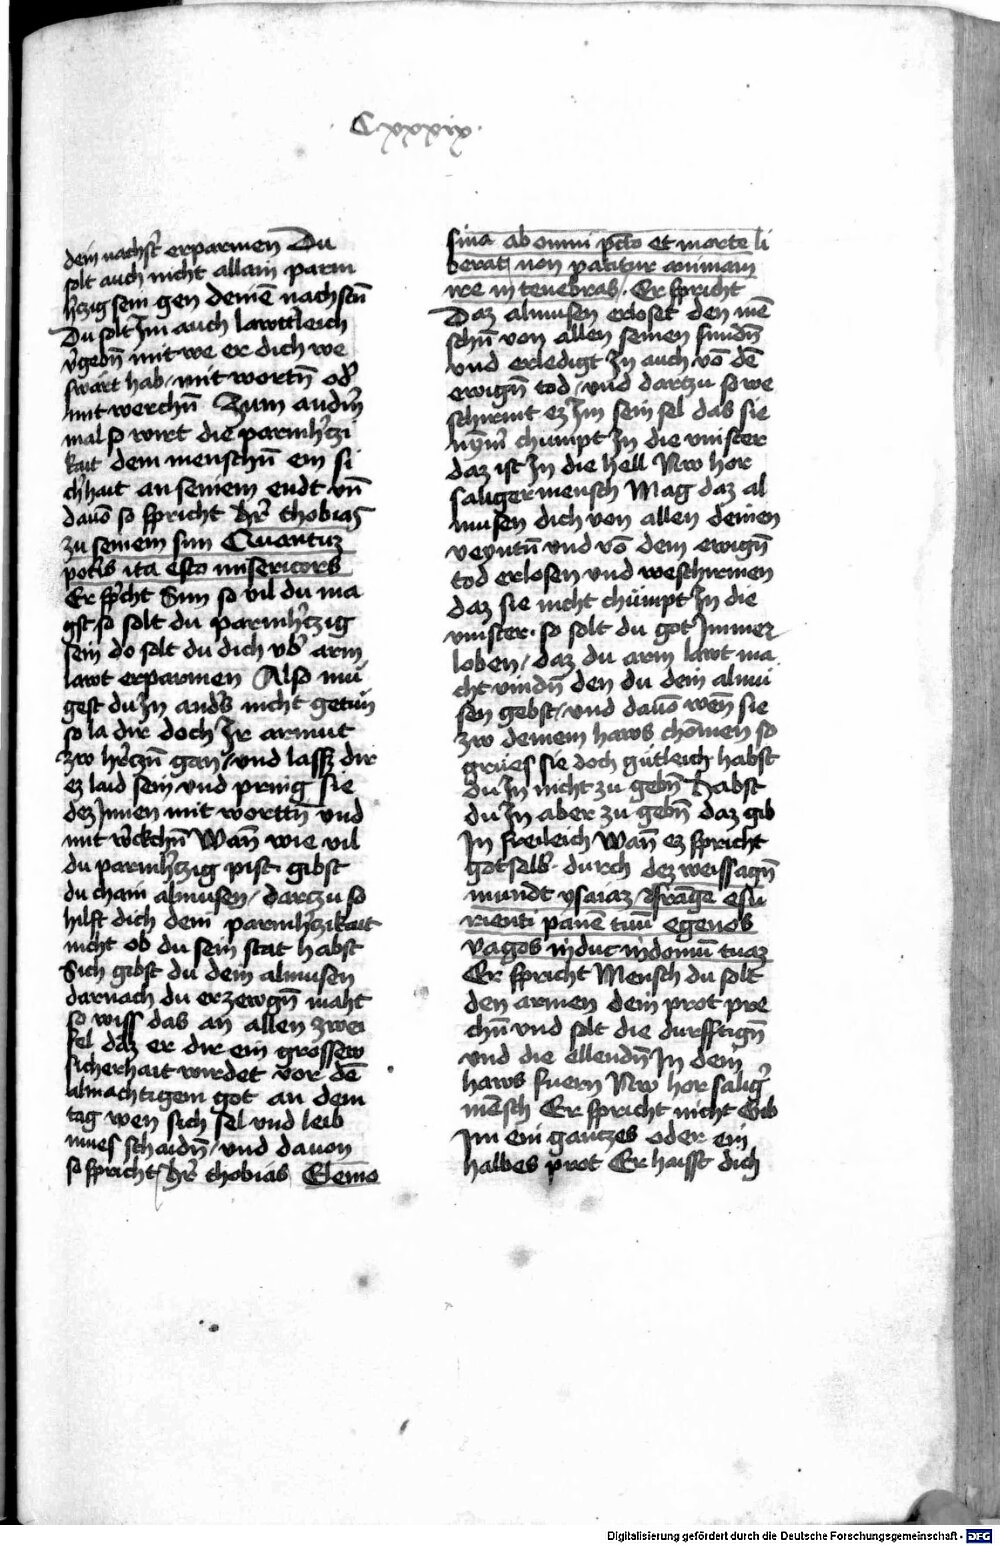 Cxxxix.
dein nachst̉ erparmen Du
solt auch nicht allain parm
h̉czig sein gen deinē nachstn̄
Du solt Im auch lawttleich
v̉gebn̄ mit we er dich we
swart hab / mit wortn̄ od̉
mit werchn̄ Zum andn̉
mal so wirt die parmh̉czi
kait dem menschn̄ ein si
ch̉hait an seinem endt vn̄
dauō so spricht h̉r thobias
zu seinem sun Quantuz
potis ita esto misericors
Er sp̉cht Sun so vil du ma
gst so solt du parmh̉czig
sein do solt du dich vb̉ arm
lawt erparmen Also mu
gest du In and̉s nicht getun
so la dir doch Ir armut
zw h̉czn̄ gan / vnd lassz dir
ez laid sein vnd prnig sie
dez Innen mit worttn̄ vnd
mit w̉ckchn̄ Wan̄ wie vil
du parmh̉czig pist gibst
du chain almusen / dartzu so
hilft dich dein parmh̉czikait
nicht ob du sein stat habst
Sich gibst du dein almusen
darnach du erzewgn̄ maht
so wiss das an allen zwei
fel daz er dir ein grossew
sicherhait wirdet vor dē
almachtigem got an dem
tag wen sich sel vnd leib
mues schaidn̄ / vnd dauon
so spricht h̉r thobias Elemo
sina ab omni pc̄to et morte li
berat non patitur animam
ire in tenebras. Er spricht
Daz almusen erloset den mē
schn̄ von allen seinen sundn̄
vnd erledigt In auch vō dē
ewign̄ tod / vnd dartzu so we
schirmt ez Im sein sel das sie
nym̉ chumpt In die vinster
daz ist In die hell Nw hor
saliger mensch Mag daz al
musen dich von allen deinen
veyntn̄ vnd vō dem ewign̄
tod erlosen vnd weschirmen
daz sie nicht chümpt In die
vinster. so solt du got Immer
loben / daz du arm lawt ma
cht vindn̄ den du dein almu
sen gebst / vnd dauō wen̄ sie
zw deinem haws chōmen so
grües sie doch gütleich habst
du In nicht zu gebn̄ Habst
du In aber zu gebn̄ daz gib
In freileich Wan̄ ez spricht
got selb̉ durch dez weissagn̄
mundt ysaiaz / frange esu
rienti panē tuū egenos
vagos induc in domū tuaz
Er spricht Mensch du solt
den armen dein prot pre
chn̄ vnd solt die durfftign̄
vnd die ellendn̄ In dein
haws fuern Nw hor salig̉
mēsch Er spricht nicht Gib
Im ein gantzes oder ein
halbes prot Er haisst dich
Digitalisierung gefördert durch die Deutsche Forschungsgemeinschaft - DFG